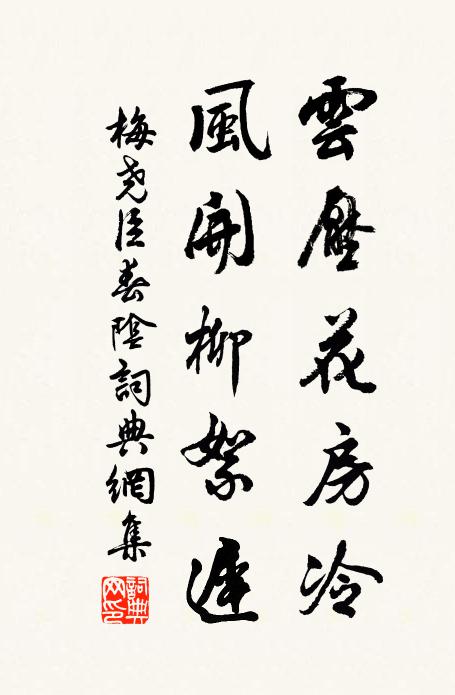 雲壓花房冷
風開柳絮遲
梅堯臣春陰詞典網集
詞典网印